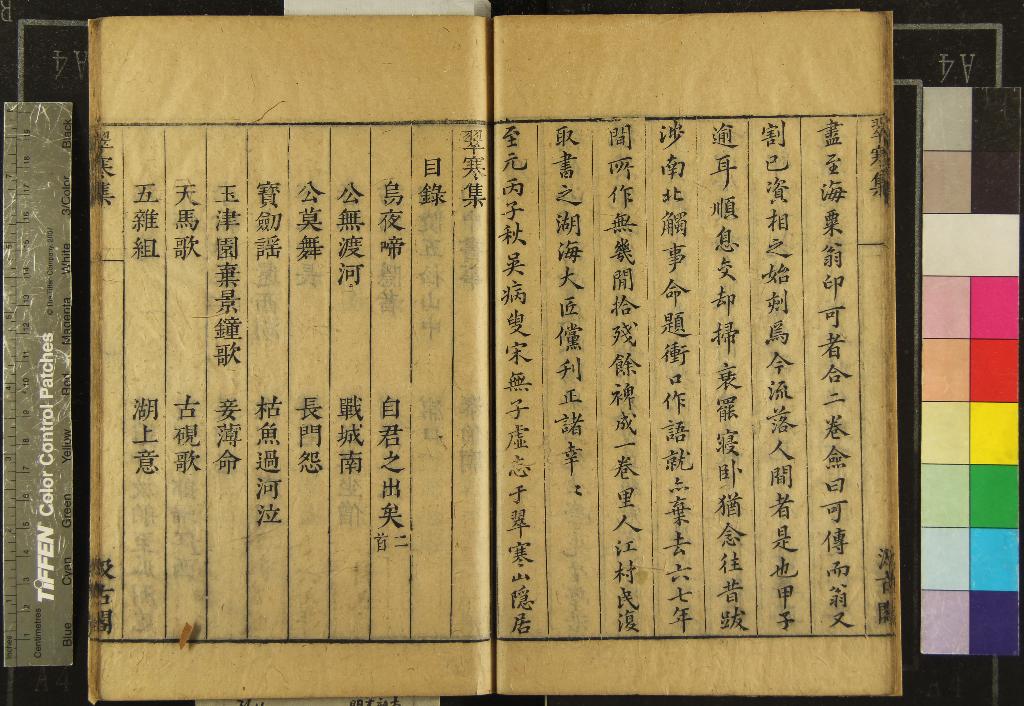 翠寒集
盡至海粟翁印可者合二卷僉曰可傳而翁又
割已資相之始刻焉今流落人間者是也甲子
逾耳順息交却掃衰罷寢卧猶念往昔跋
涉南北觸事命題衝口作語就亦棄去六七年
間所作無幾閒拾殘餘裨成一卷里人江村民復
取書之湖海大匠儻刋正諸幸〻
至元丙子秋吳病叟宋無子虛志于翠寒山隱居
汲古閣
翠寒集
目錄
烏夜啼 自君之出矣二首
公無渡河 戰城南
公莫舞 長門怨
寶劒謡 枯魚過河泣
玉津園棄景鐘歌 妾薄命
天馬歌 古硯歌
五雜組 湖上意
翠寒集
汲古閣
TIFFEN Color Control Patches
© The Tiffen Company, 2007
Blue Cyan Green Yellow Red Magenta White 3/Color Black
Centimetres
Inches
A4
A4